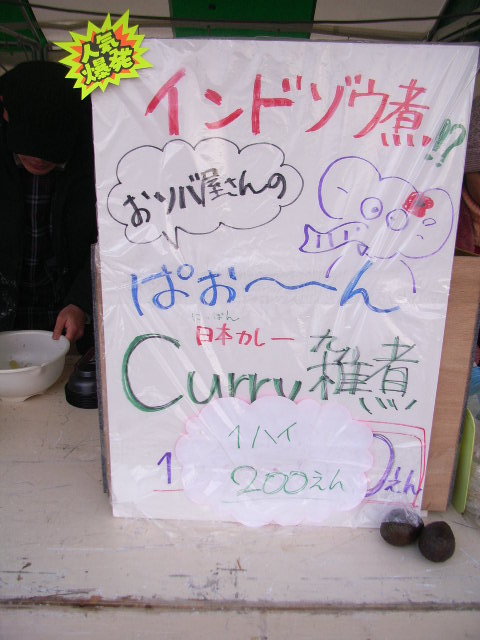 人気
爆発
インドゾウ煮!?
おソバ屋さんの
ぱお〜〜ん
にっぽん
日本カレー
Curry雑煮
1ハイ
200えん
1
0えん